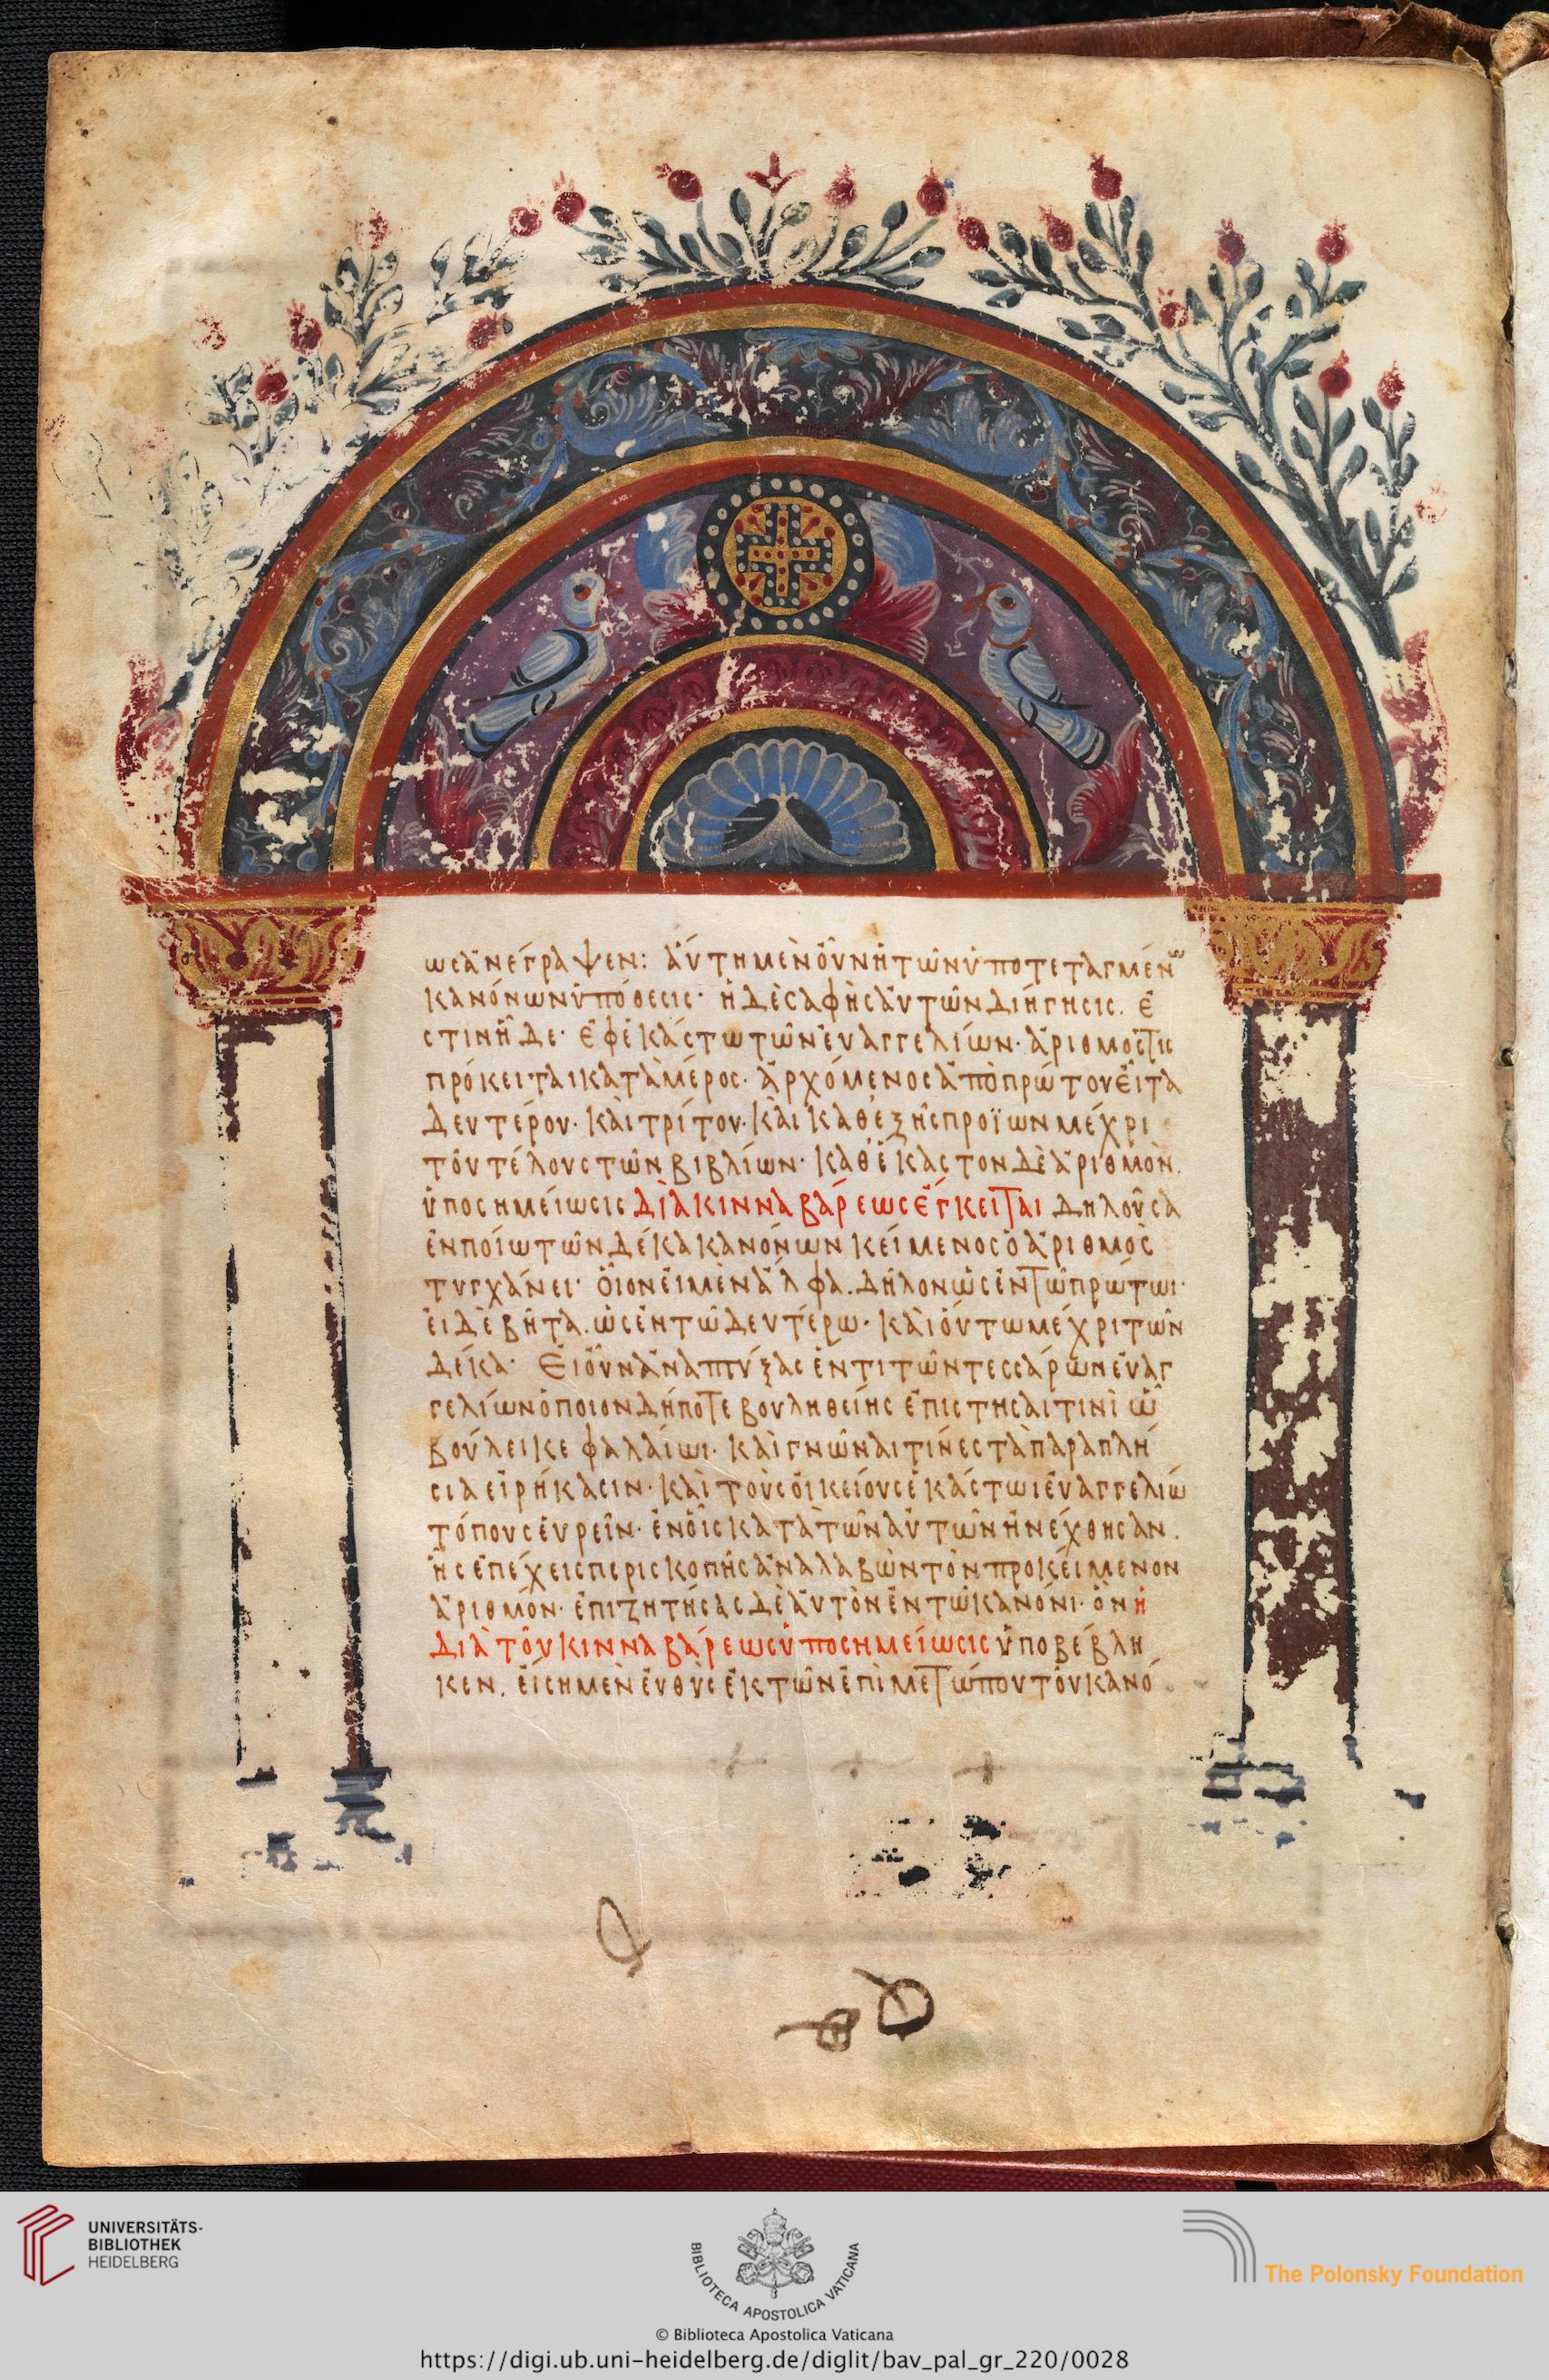 ωσἀνέγραψεν: ἁύτη μὲν ὀῦν ἡ τῶν ὑποτεταγμένων
κανόνων ὑπόθεσις· ἡ δὲ σαφὴς ἀυτῶν διήγησις. ἔ
στιν ἥδε· ἐφ ἑκάστω τῶν ἐυαγγελίων· ἀριθμός τις
πρόκειται κατὰ μέρος· ἀρχόμενος ἀπὸ πρώτου ἐῖτα
δευτέρου· καὶ τρίτου· καὶ καθεξῆς προϊων μέχρι
τοῦ τέλους τῶν βιβλίων· καθ ἕκαστον δὲ ἀριθμὸν.
ὑποσημείωσις διὰ κινναβάρεως ἔγκειται δηλοῦσα
ἐν ποίω τῶν δέκα κανόνων κείμενος ὁ ἀριθμὸς
τυγχάνει· ὁῖον ἐι μὲν ἄλφα. δῆλον ὡς ἐν τῶ πρώτωι·
ἐι δὲ βῆτα. ὡς ἐν τῶ δευτέρω· καὶ ὁύτω μέχρι τῶν
δέκα· Ἐι ὀῦν ἀναπτύξας ἕν τι τῶν τεσσάρων ἐυαγ
γελίων ὁποιονδήποτε βουληθείης ἐπιστῆσαι τινὶ ὧ
βούλει κεφαλαίωι· καὶ γνῶναι τίνες τὰ παραπλή
σια εἰρήκασιν· καὶ τοὺς ὀικείους ἑκάστωι ἐυαγγελίω
τόπους ἑυρεῖν· ἐν ὁῖς κατὰ τῶν ἀυτῶν ἠνέχθησαν.
ἧς ἐπέχεις περισκοπῆς ἀναλαβὼν τὸν προκείμενον
ἀριθμόν· ἐπιζητήσας δὲ ἀυτὸν ἐν τῶ κανόνι· ὃν ἡ
διὰ τοῦ κινναβάρεως ὑποσημείωσις ὑποβέβλη
κεν. ἐίση μὲν ἐυθὺς ἐκ τῶν ἐπὶ μετώπου τοῦ κανό
UNIVERSITÄTS-
BIBLIOTHEK
HEIDELBERG
BIBLIOTECA APOSTOLICA VATICANA
The Polonsky Foundation
© Biblioteca Apostolica Vaticana
https://digi.ub.uni-heidelberg.de/diglit/bav_pal_gr_220/0028